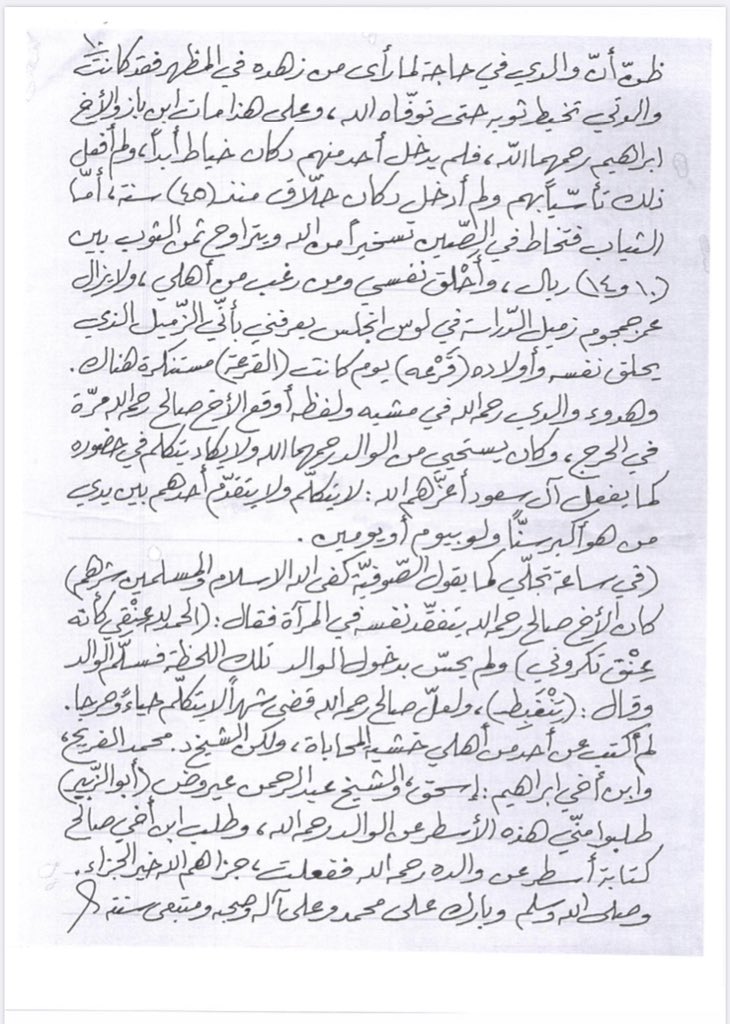 ظنّه أنّ والدي في حاجة لما رأى من زهده في المظهر فقد كانت
والدتي تخيط ثوبه حتى توفّاه الله، وعلى هذا مات ابن باز والأخ
ابراهيم رحمهما الله، فلم يدخل أحد منهم دكان خياط أبداً، ولم أفعل
ذلك تأسّياً بهم ولم أدخل دكان حلّاق منذ (٤٥) سنة، أمّا
الثياب فتخاط في الصّين تسخيراً من الله ويتراوح ثمن الثوب بين
(١٠ و١٤) ريال، وأحْلق نفسي ومن رغب من أهلي، ولا يزال
عمر جمجوم زميل الدّراسة في لوس انجلس يعرفني بأنّي الزّميل الذي
يحلق نفسه وأولاده (قَرْعه) يوم كانت (القرعة) مستنكرة هناك.
وهدوء والدي رحمه الله في مشيه ولفظه أوقع الأخ صالح رحمه الله مرّة
في الحرج، وكان يستحيي من الوالد رحمهما الله ولا يكاد يتكلم في حضوره
كما يفعل آل سعود أعزّهم الله: لا يتكلّم ولا يتقدّم أحدهم بين يدي
من هو أكبر سنًّا ولو بيوم أو يومين.
(في ساعة تجلّي كما يقول الصّوفيّة كفى الله الاسلام والمسلمين شرهم)
كان الأخ صالح رحمه الله يتفقّد نفسه في المرآة فقال: (الحمد لله عِنْقي كأنه
عِنْق تكروني) ولم يحسّ بدخول الوالد تلك اللحظة فسلّم الوالد
وقال: (يَنْغَبِط)، ولعلّ صالح رحمه الله قضى شهراً لا يتكلّم حياءً وحرجا.
لم أكتب عن أحد من أهلي خشية المحاباة، ولكن الشيخ د. محمد الفريح،
وابن أخي ابراهيم: إسحق، والشيخ عبد الرحمن عيروض (أبو الزّبير)
طلبوا منّي هذه الأسطر عن الوالد رحمه الله، وطلب ابن أخي صالح
كتابة أسطر عن والده رحمه الله ففعلت، جزاهم الله خير الجزاء.
وصلى الله وسلم وبارك على محمد وعلى آله وصحبه ومتبعي سنته